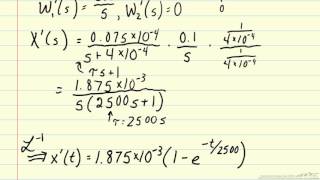 W₁'(s) = ——/s, W₂'(s) = 0
X'(s) = (0.075×10⁻⁴)/(s + 4×10⁻⁴) · 0.1/s · (1/(4×10⁻⁴))/(1/(4×10⁻⁴))
↑ τs+1
= (1.875×10⁻³)/(s(2500s+1))
↑ τ=2500s
ℒ⁻¹ ⇒ x'(t) = 1.875×10⁻³(1 - e^(-t/2500))